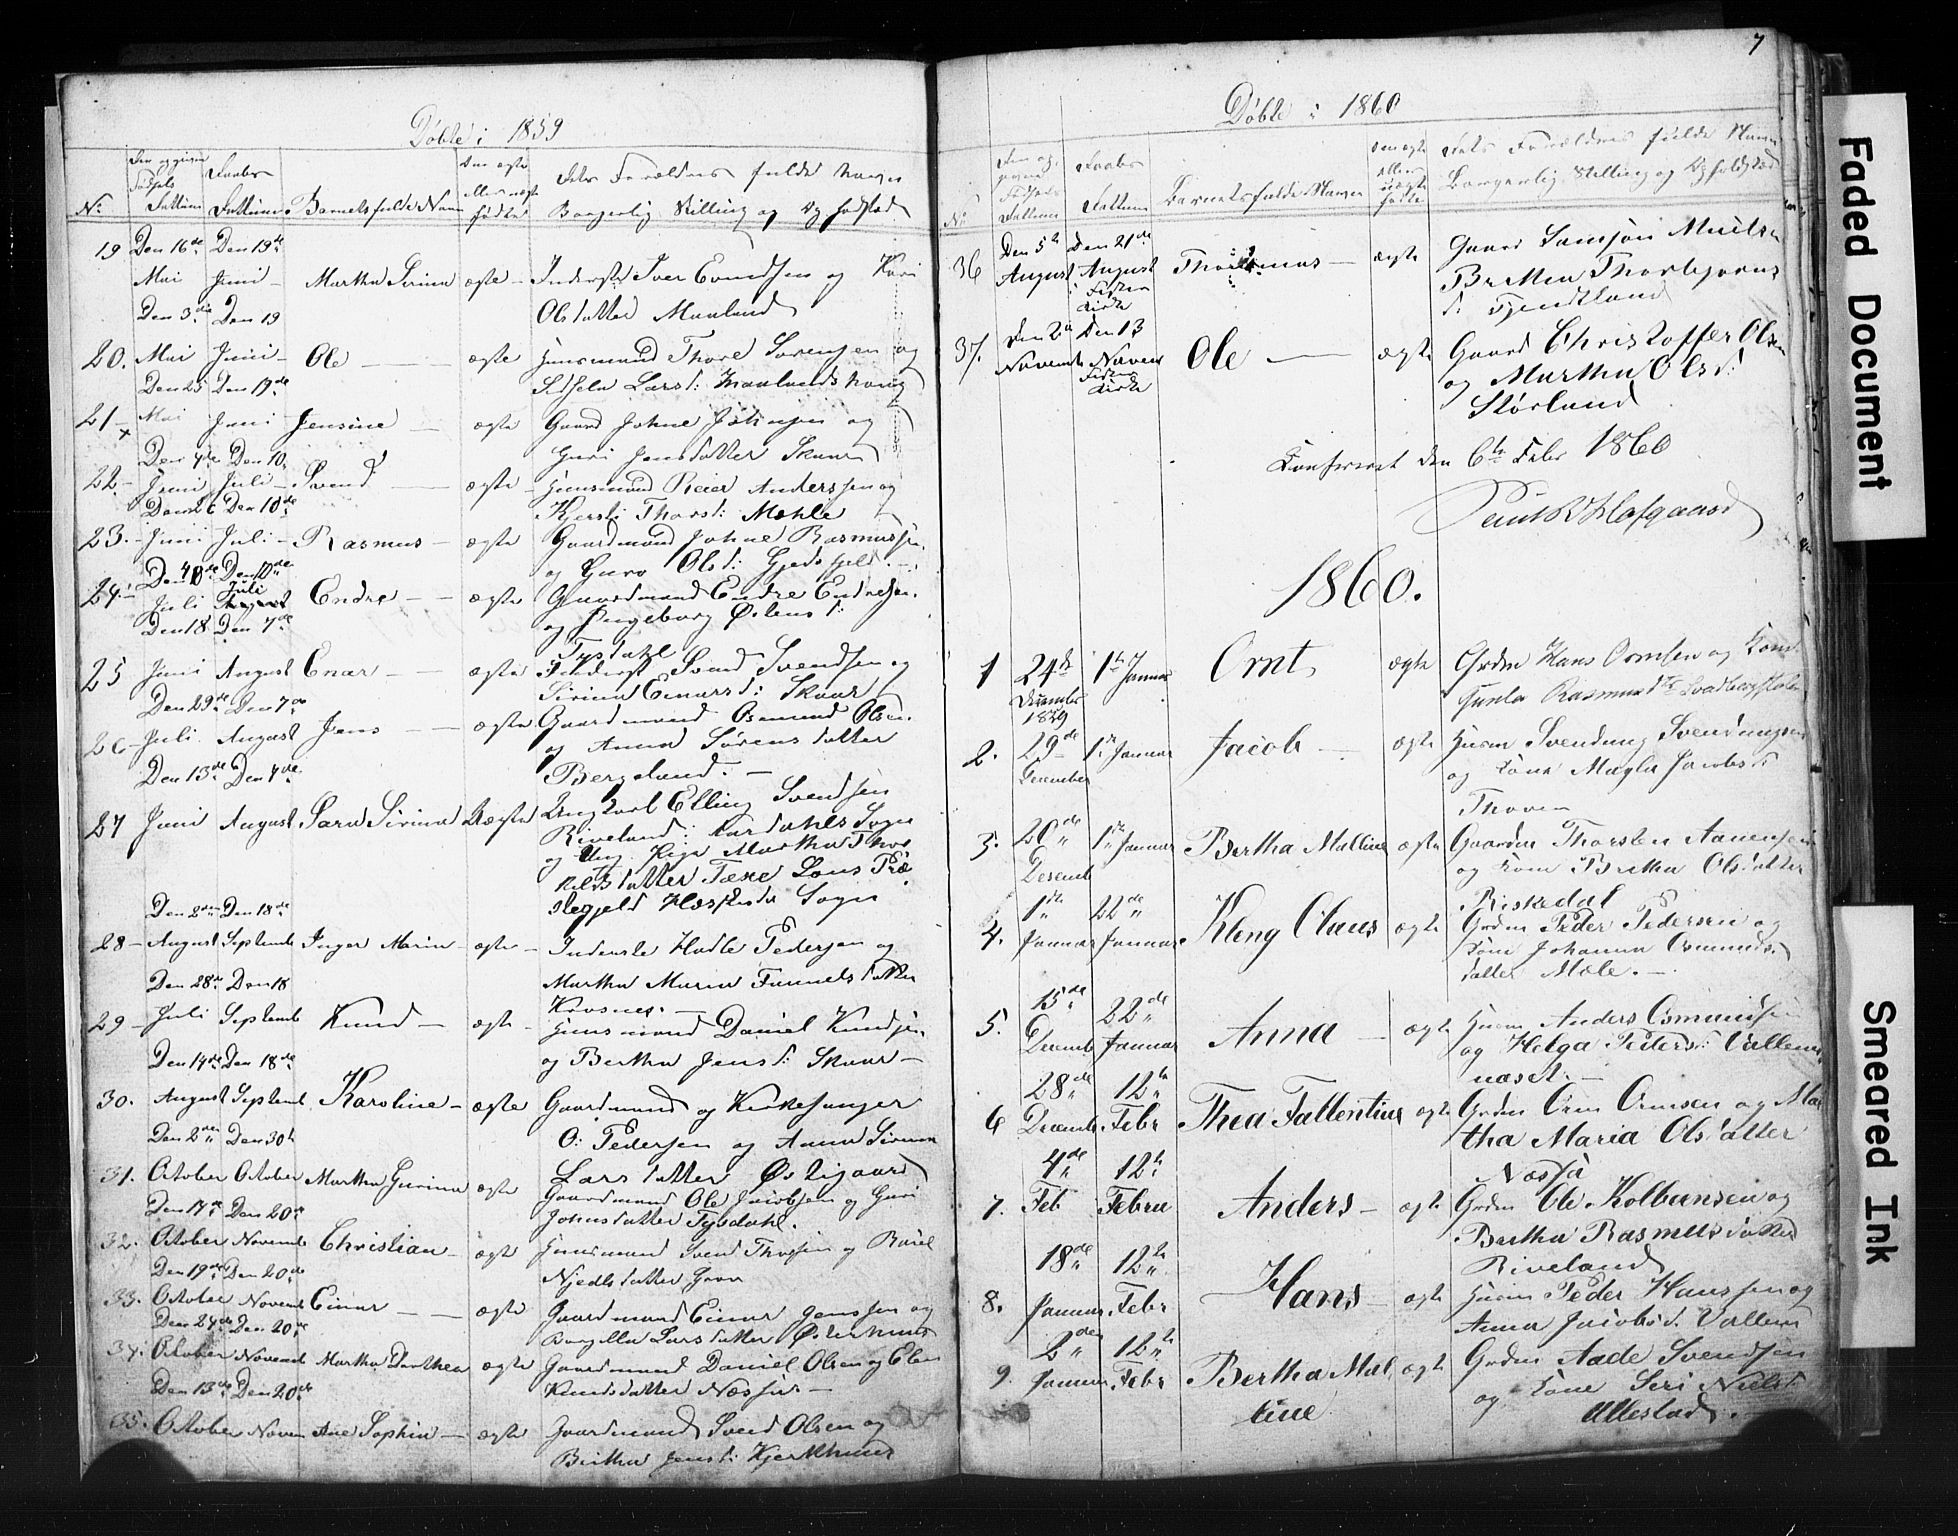 Døbte i 1859
No
Den opgivne Fødsels Dattum
Daabs Dattum
Barnets fulde Navn
Om ægte eller uægte fødte
Dets Forældres fulde Navn
Borgerlig Stilling og Opholdsted
19 Den 16de Mai Den 19de Juni Martha Sirina ægte Inderste Iver Evindsen og Kari
Olsdatter Maaland
20. Den 3die Mai Den 19 Juni Ole ægte Huusmand Thore Sørensen og
Larsd: Maalands
21 Den 25 Mai Den 19de Juni Jensine ægte Gaard Johne og
Guri Jensdatter Skaar
22 Den 4de Juni Den 10 Juli Svend ægte Huusmand Reier Anderssen og
Kjersti Thorsd: Mæhle
23. Den 26 Juni Den 10de Juli Rasmus ægte Gaardmand Johne Rasmussen
og Guro Olsd: Gjedsfjeld
24 Den 10de Juli Den 10de Juli Endre ægte Gaardmand Endre Endresen
og Ingeborg Østensd:
Tysdahl
25 Den 18 Juni Den 7de August Enar ægte Inderst Svend Svendsen og
Sirina Einarsd: Skaar
26 Den 29de Juli Den 7de August Jens ægte Gaardmand Osmund Olsen
og Anna Sørensdatter
Bergeland
27 Den 13de Juni Den 7de August Sara Sirina Uægte Ungkarl Elling Svendsen
Riveland: Aardahls Sogn
og Ung Pige Martha Thor
kildsdatter Tæxe Præ
stegjeld Sogn
28 Den 2den August Den 18de Septemb Inger Maria ægte Inderste Hadle Pedersen og
Martha Maria
Krosnes
29 Den 28de Juli Den 18 Septemb Knud ægte Huusmand Daniel Knudsen
og Bertha Jensd: Skaar
30. Den 14de August Den 18de Septemb Karoline ægte Gaardmand og Kirkesanger
O: Pedersen og Anna Sirina
Larsdatter Østigaard
31. Den 2den October Den 30te October Martha Gurina ægte Gaardmand Ole Jacobsen og Guri
Johnsdatter Tysdahl.
32. Den 17de October Den 20de Novemb Christian ægte Huusmand Svend og
Njedlsdatter
33. Den 19de October Den 20de Novemb Einar ægte Gaardmand Einar Jenssen og
Larsdatter Østerhuus
34. Den 24de October Den 20de Novemb Martha Dorthea ægte Gaardmand Daniel Olsen og Elen
Knudsdatter Næssa
35. Den 13de October Den 20de Novem Ane Sophia ægte Gaardmand Svend Olsen og
Bertha Jensd: Kjerkhuus
7
Døbte i 1860
No
Den opgivne Fødsels Dattum
Daabs Dattum
Barnets fulde Navn
Om ægte eller uægte fødte
Dets Forældres fulde Navn
Borgerlig Stilling og Opholdsted
36 Den 5te August Den 21de August i Kirke Thormus ægte Gaard Samson
Thorbjørns
d: Fjendtland
37. Den 2den Novemb Den 13 Novem Kirke Ole ægte Gaard Christoffer Olsen
og Martha Olsd:
Størland
Confereret den 6te Febr 1860
1860.
1 24de December 1859 1te Januar Ornt ægte Grdm Hans Ormsen og Kone
Gunla Rasmusd
2. 29de December 1te Januar Jacob ægte Husm Svendung Svendungsen
og Kone Magla Jacobsd
Thoven
3. 20de Desemb 1te Januar Bertha Malline ægte Gaardm Thorsten Aanensen
og Kone Bertha Olsdatter
Riskedal
4. 1te Januar 22de Januar Kleng Olaus ægte Grdm Peder Pedersen og
Kone Johanna Osmunds
datter Mæle.
5. 15de Decemb 22de Januar Anna ægte Husm Anders Osmundsen
og Helga Pedersd: Valleme
naset.
6 28de Decemb 12te Febr Thea Fallentine ægte Grdm Orm Ormsen og Mar
tha Maria Olsdatter
Næssa
7. 4de Feb 12te Februa Anders ægte Grdm Ole Kolbeinsen og
Bertha Rasmusdatter
Riveland
8. 18de Januar 12te Febr Hans ægte Husm Peder Hanssen og
Anna Jacobsd: Vallem
9. 2den Januar 12te Febr Bertha Mal
tine ægte Grdm Aade Svendsen
og Kone Seri Nielsd:
Ullestad.
Faded Document
Smeared Ink